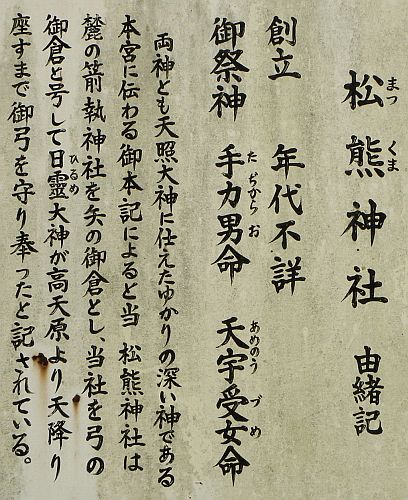 松熊神社 由緒記
創立 年代不詳
御祭神 手力男命 天宇受女命
両神とも天照大神に仕えたゆかりの深い神である
本宮に伝わる御本記によると当 松熊神社は
麓の箭執神社を矢の御倉とし、当社を弓の
御倉と号して日靈大神が高天原より天降り
座すまで御弓を守り奉ったと記されている。
まつ くま
たぢからお
あめのうづめ
ひるめ